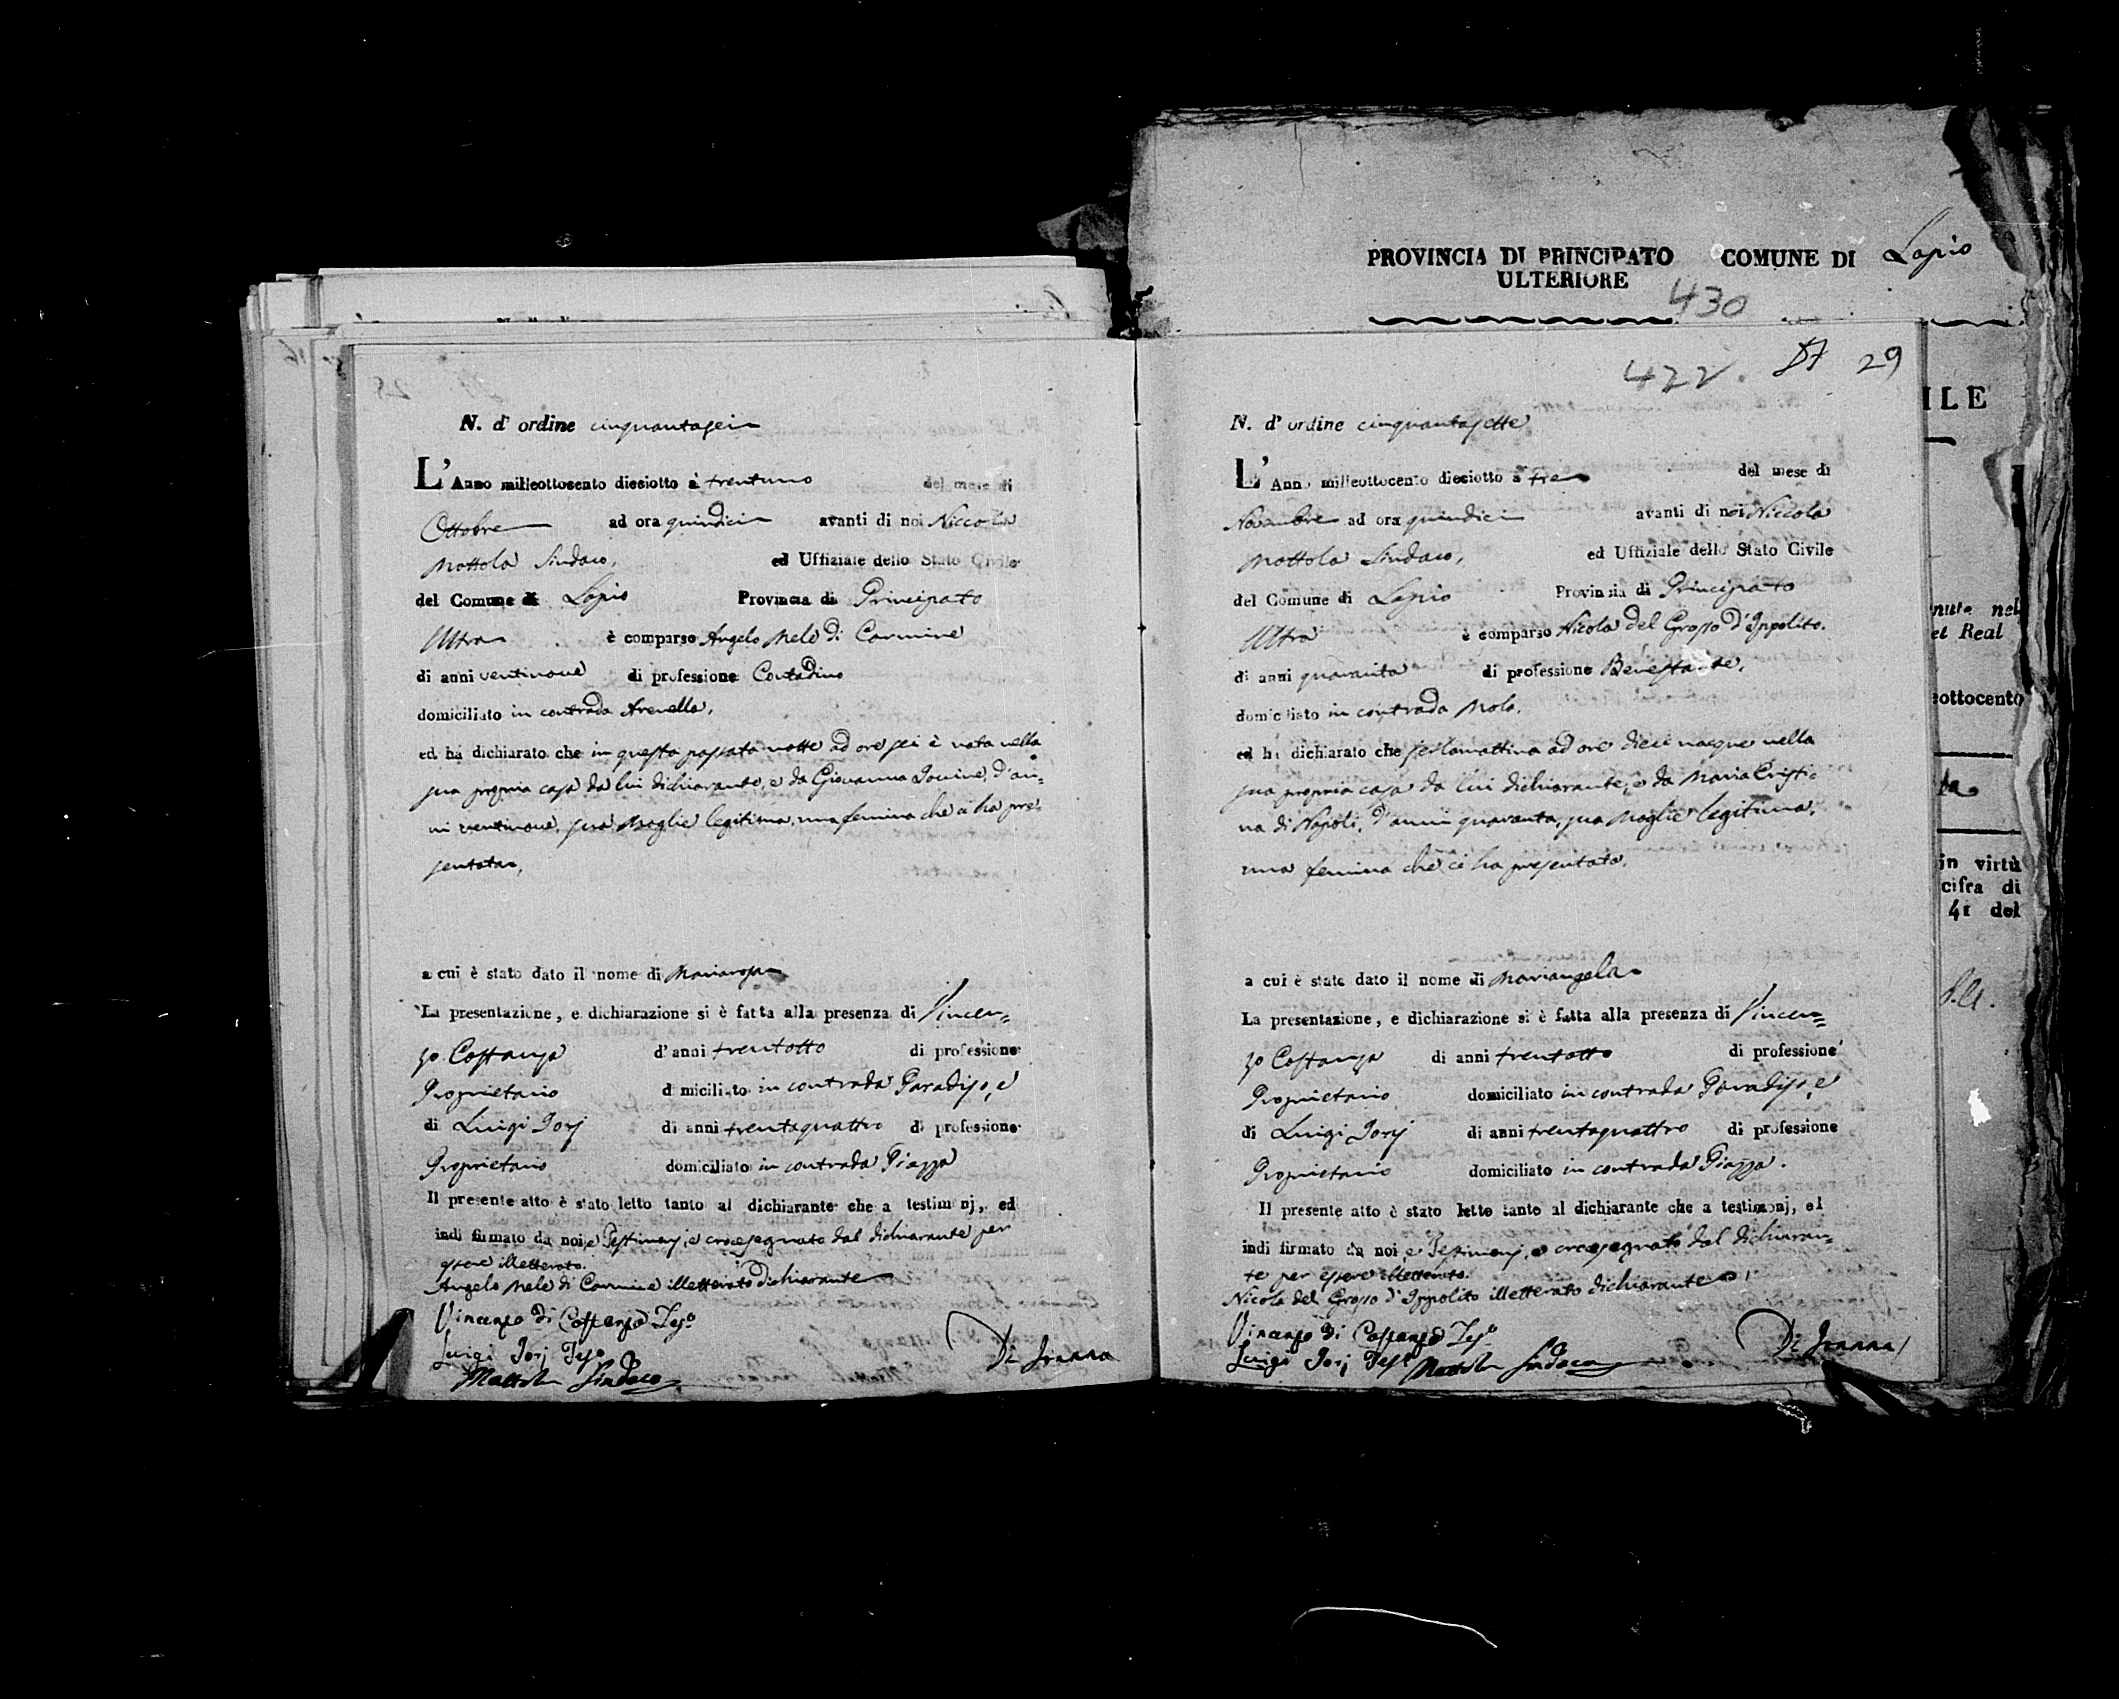 PROVINCIA DI PRINCIPATO COMUNE DI Lapio
ULTERIORE
430
N. d' ordine cinquantasei
L' Anno milleottocento dieciotto à trentuno del mese di
Ottobre ad ora quindici avanti di noi Niccola
Mottola Sindaco, ed Uffiziale dello Stato Civile
del Comune di Lapio Provincia di Principato
Ultra è comparso Angelo Mele di Carmine
di anni ventinove di professione Contadino
domiciliato in contrada Arenella,
ed ha dichiarato che in questa passata notte ad ore sei è nata nella
sua propria casa da lui dichiarante, e da Giovanna Iovine, d'an=
ni ventinove, sua Moglie legitima, una femina che ci ha pre
sentata,
a cui è stato dato il nome di Mariarosa
La presentazione, e dichiarazione si è fatta alla presenza di Vincen=
zo Costanza d'anni trentotto di professione
Proprietario domiciliato in contrada Paradiso, e
di Luigi Iorj di anni trentaquattro di professione
Proprietario domiciliato in contrada Piazza
Il presente atto è stato letto tanto al dichiarante che a testimonj, ed
indi firmato da noi, e Testimonj, e crocesegnato dal dichiarante per
essere illetterato.
Angelo Mele di Carmine illetterato dichiarante
Vincenzo di Costanzo Tes.º
Luigi Iorj Tesº
Mottola Sindaco
Di Ioanna
422. 57 29
N. d' ordine cinquantasette
L' Anno milleottocento dieciotto à tre del mese di
Novembre ad ora quindici avanti di noi Niccola
Mottola Sindaco, ed Uffiziale dello Stato Civile
del Comune di Lapio Provincia di Principato
Ultra è comparso Nicola del Grosso d'Ippolito.
di anni quaranta di professione Benestante,
domiciliato in contrada Molo,
ed ha dichiarato che jerlamattina ad ore dieci nacque nella
sua propria casa da lui dichiarante, e da Maria Cristi=
na di Napoli, d'anni quaranta, sua Moglie legitima,
una femina che ci ha presentata,
a cui è stato dato il nome di Mariangela
La presentazione, e dichiarazione si è fatta alla presenza di Vincen=
zo Costanza di anni trentotto di professione
Proprietario domiciliato in contrada Paradiso, e
di Luigi Iorj di anni trentaquattro di professione
Proprietario domiciliato in contrada Piazza.
Il presente atto è stato letto tanto al dichiarante che a testimonj, ed
indi firmato da noi, e Testimonj, e crocesegnato dal dichiaran=
te per essere illetterato.
Nicola del Grosso d'Ippolito illetterato dichiarante
Vincenzo di Costanzo Tesº
Luigi Iorj Tesº Mottola Sindaco
Di Ioanna
ILE
nute nel
et Real
eottocento
in virtù
cifra di
41 del